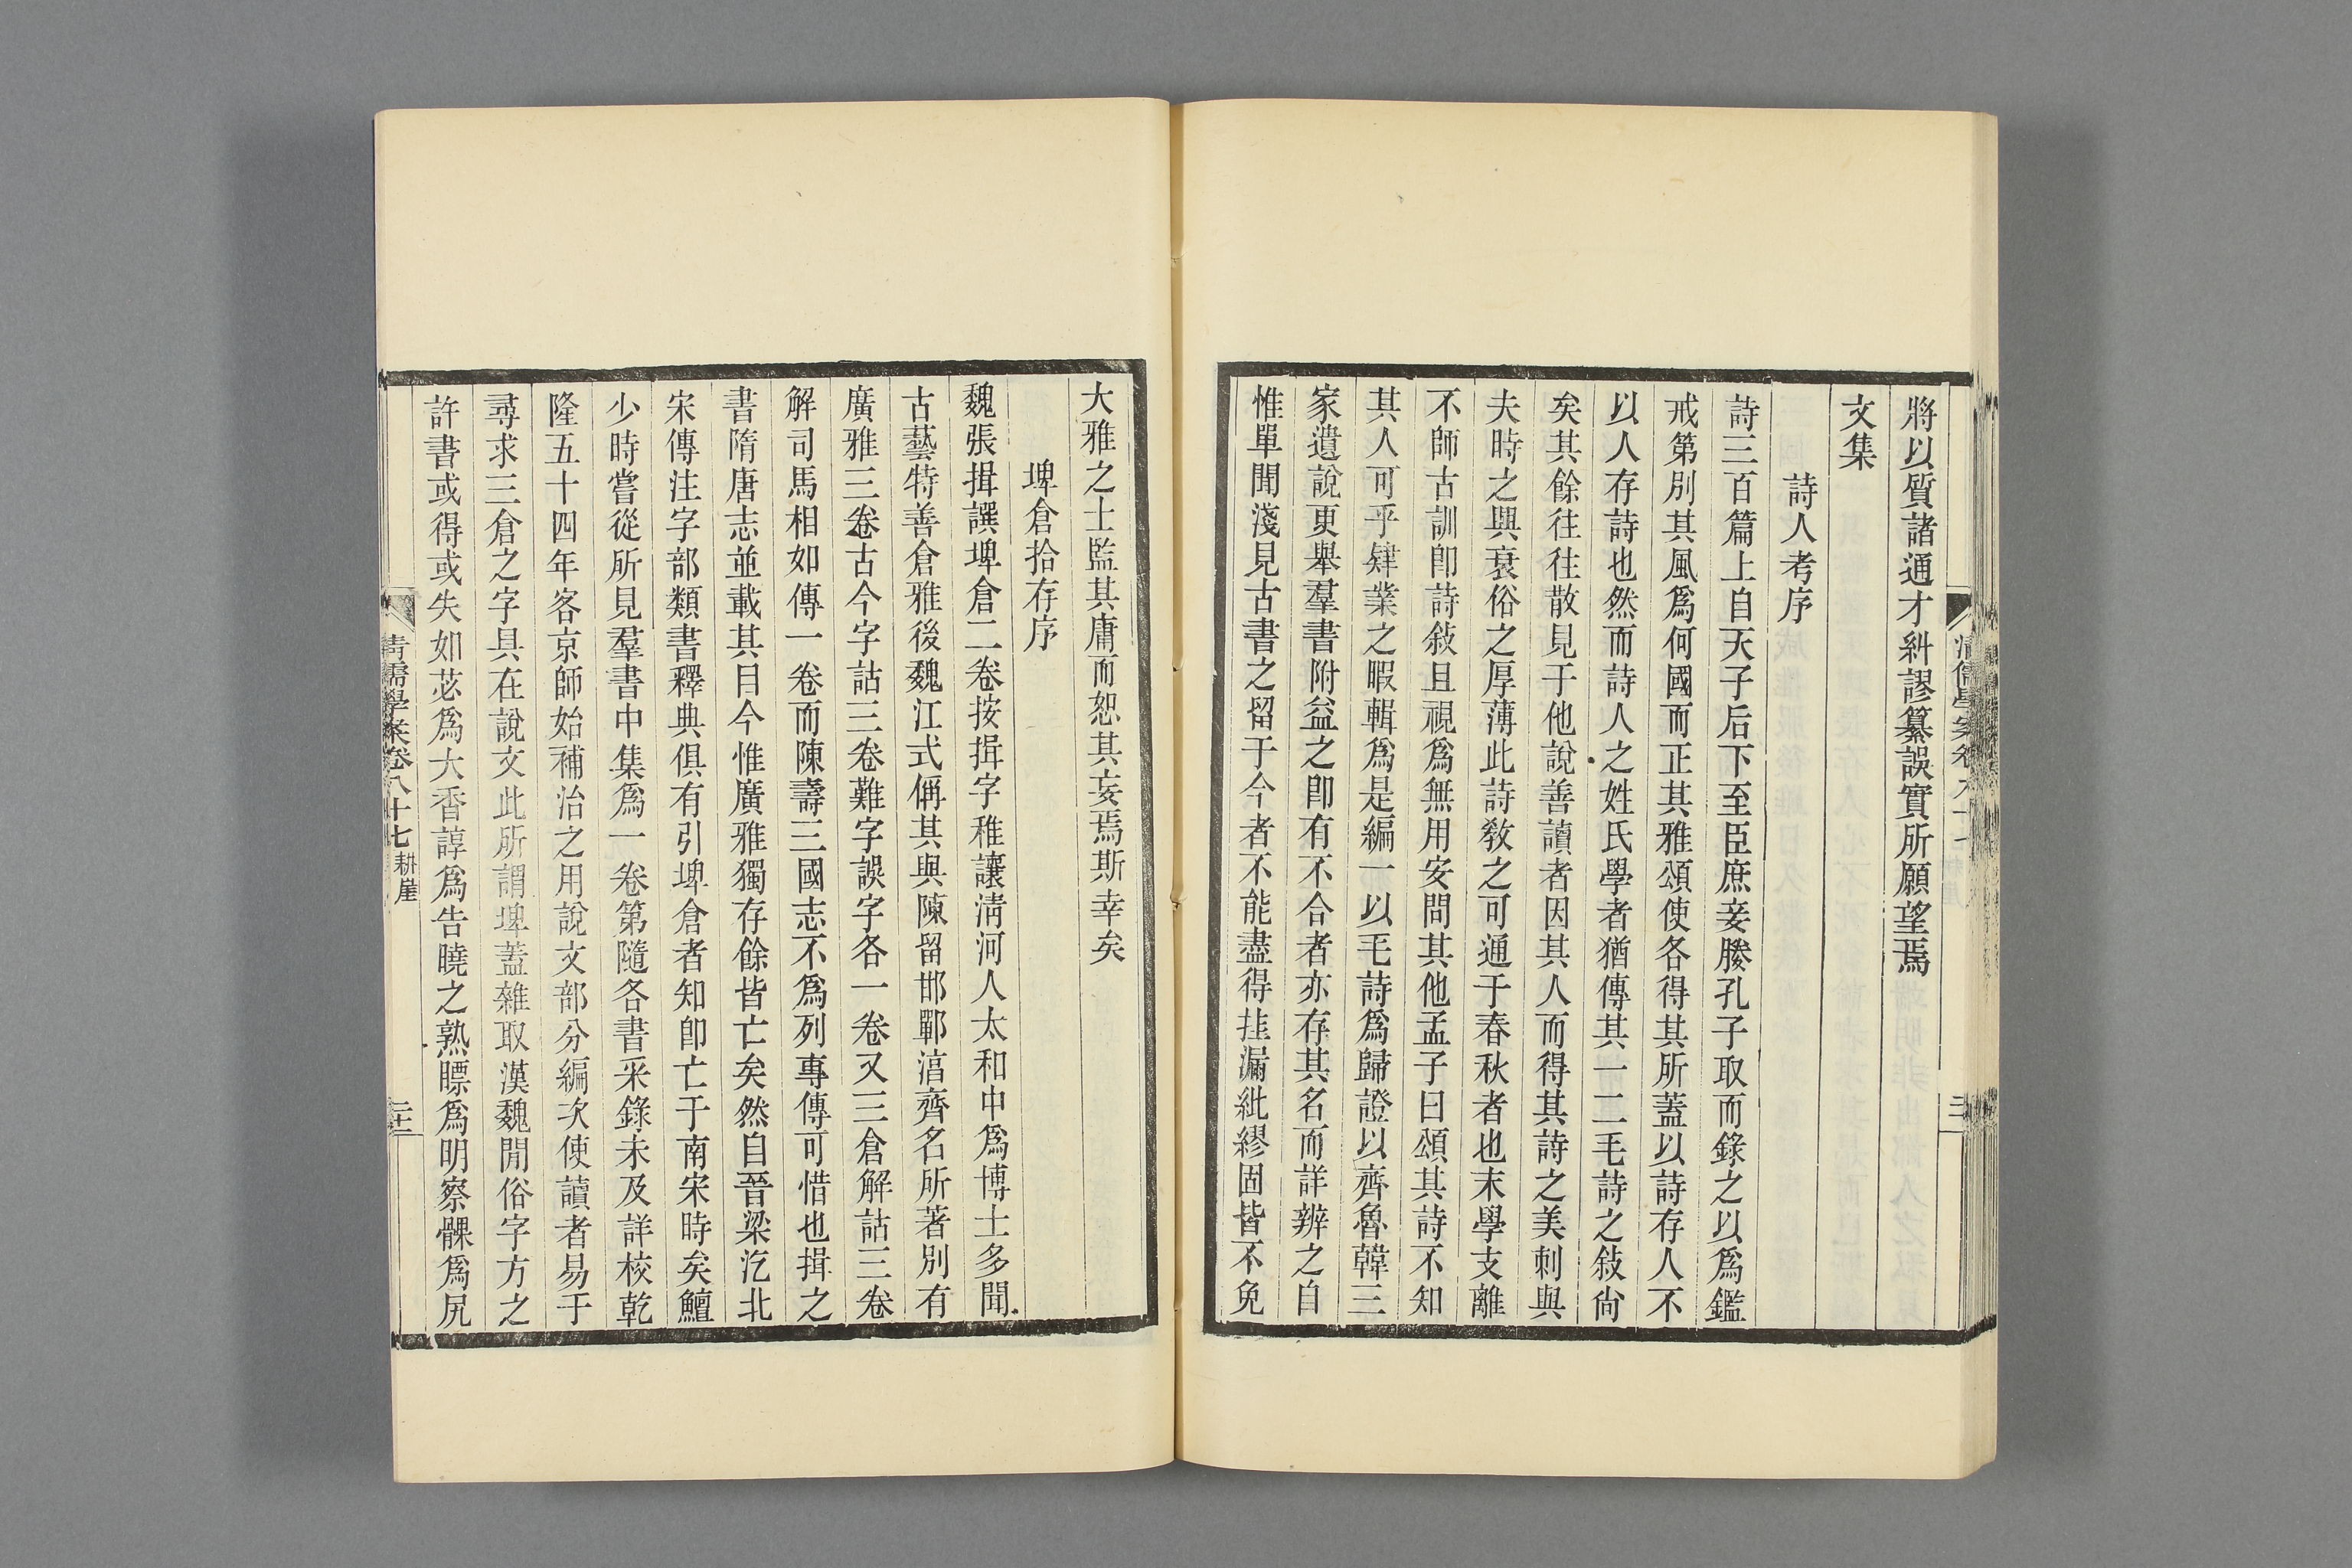 將以質諸通才糾謬纂誤實所願望焉
文集
詩人考序
詩三百篇上自天子后下至臣庶妾媵孔子取而錄之以爲鑑
戒第別其風爲何國而正其雅頌使各得其所蓋以詩存人不
以人存詩也然而詩人之姓氏學者猶傳其一二毛詩之敍尙
矣其餘往往散見于他說善讀者因其人而得其詩之美刺與
夫時之興衰俗之厚薄此詩敎之可通于春秋者也末學支離
不師古訓卽詩敍且視爲無用安問其他孟子曰頌其詩不知
其人可乎肄業之暇輯爲是編一以毛詩爲歸證以齊魯韓三
家遺說更舉羣書附益之卽有不合者亦存其名而詳辨之自
惟單聞淺見古書之留于今者不能盡得挂漏紕繆固皆不免
大雅之士監其庸而恕其妄焉斯幸矣
埤倉拾存序
魏張揖譔埤倉二卷按揖字稚讓淸河人太和中爲博士多聞
古藝特善倉雅後魏江式偁其與陳留邯鄲淳齊名所著別有
廣雅三卷古今字詁三卷難字誤字各一卷又三倉解詁三卷
解司馬相如傳一卷而陳壽三國志不爲列專傳可惜也揖之
書隋唐志並載其目今惟廣雅獨存餘皆亡矣然自晉梁汔北
宋傳注字部類書釋典俱有引埤倉者知卽亡于南宋時矣鱣
少時嘗從所見羣書中集爲一卷第隨各書采錄未及詳校乾
隆五十四年客京師始補治之用說文部分編次使讀者易于
尋求三倉之字具在說文此所謂埤蓋雜取漢魏閒俗字方之
許書或得或失如苾爲大香諄爲告曉之熟瞟爲明察髁爲尻
淸儒學案卷八十七 耕崖